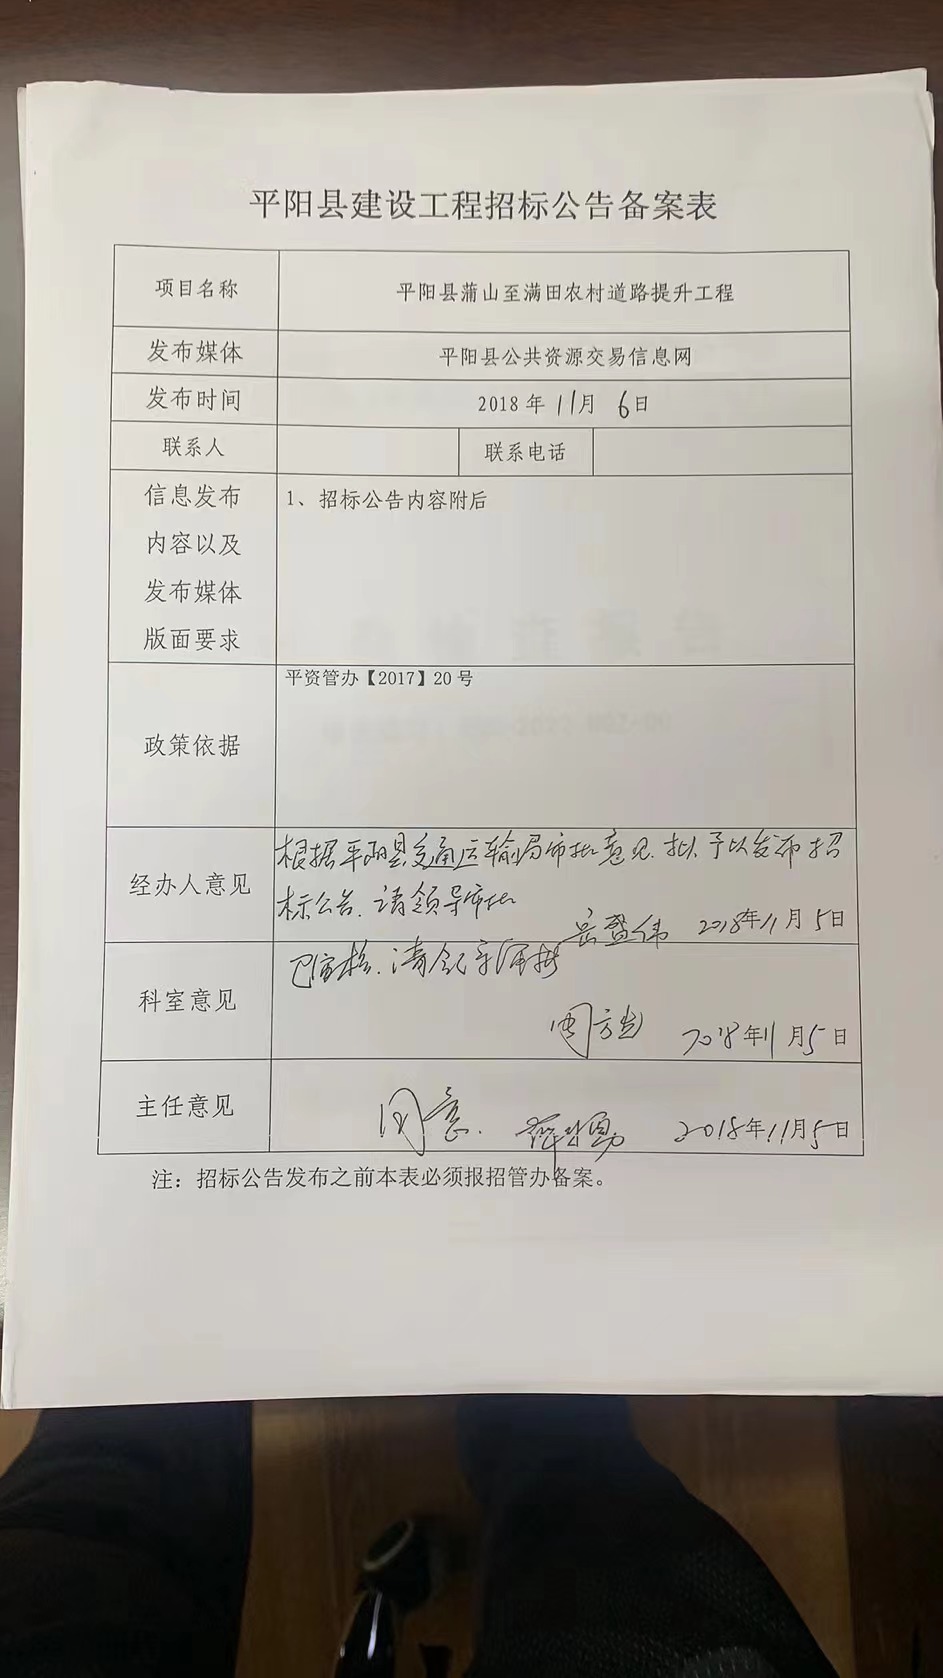 平阳县建设工程招标公告备案表
项目名称 平阳县蒲山至满田农村道路提升工程
发布媒体 平阳县公共资源交易信息网
发布时间 2018年11月6日
联系人 联系电话
信息发布 1、招标公告内容附后
内容以及
发布媒体
版面要求
平资管办【2017】20号
政策依据
根据平阳县交通运输局审批意见.拟予以发布招
经办人意见
标公告.请领导审批
2018年11月5日
已审核.请
科室意见
2018年11月5日
主任意见 同意. 2018年11月5日
注：招标公告发布之前本表必须报招管办备案。